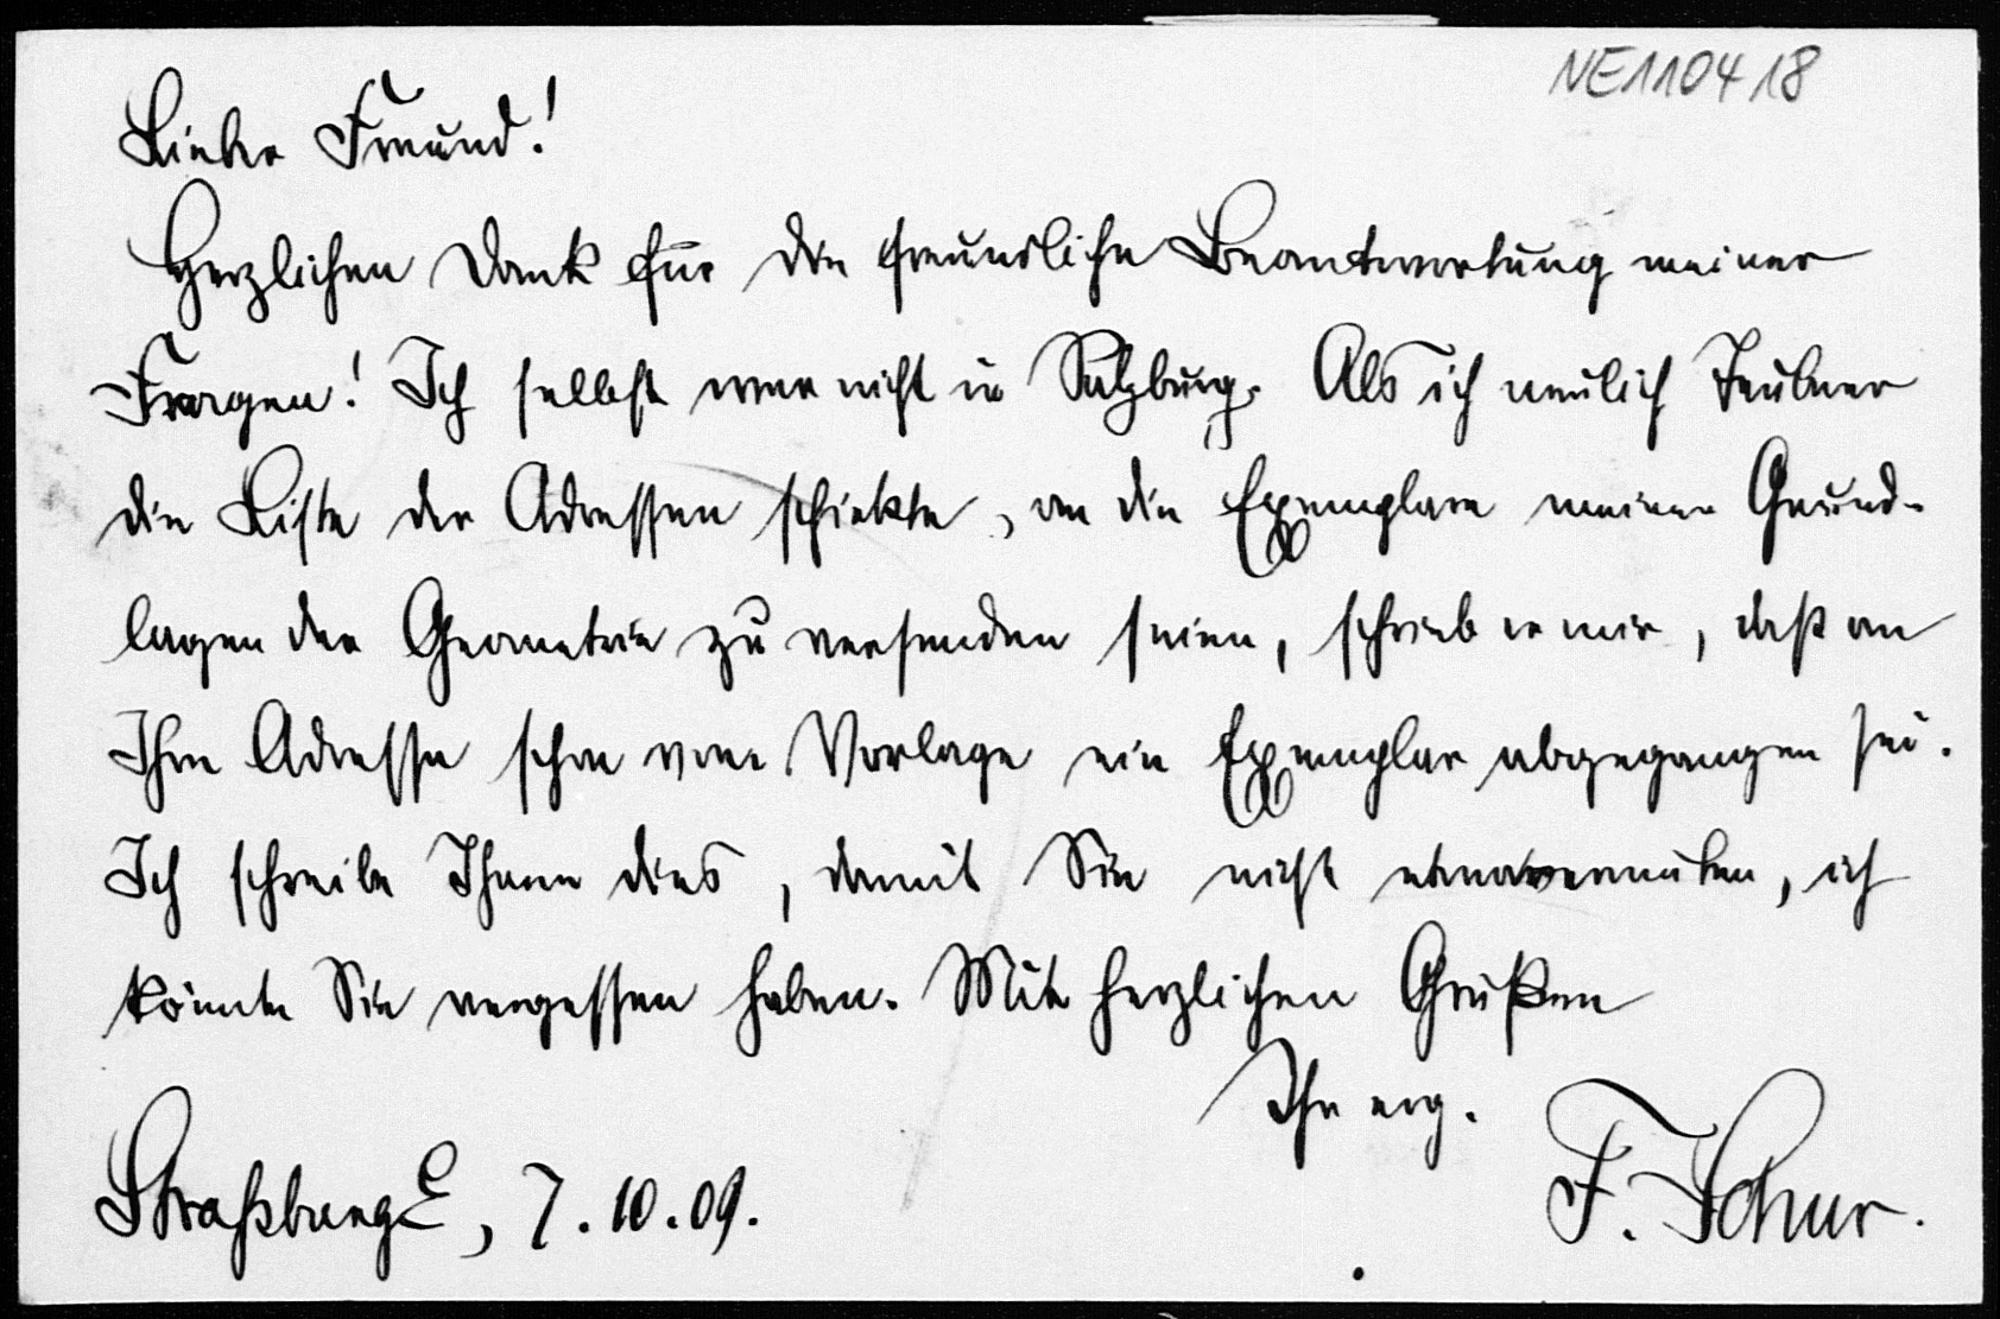 NE110418
Lieber Freund!
Herzlichen Dank für die freundliche Beantwortung meiner
Fragen! Ich selbst war nicht in Salzburg. Als ich neulich Teubner
die Liste der Adressen schickte, an die Exemplare meiner Grund-
lagen der Geometrie zu versenden seien, schrieb er mir, daß an
Ihre Adresse schon vom Verlage ein Exemplar abgegangen sei.
Ich schreibe Ihnen dies, damit Sie nicht etwa vermuten, ich
könnte Sie vergessen haben. Mit herzlichen Grüßen
Ihr erg.
Straßburg E, 7.10.09.
F. Schur.